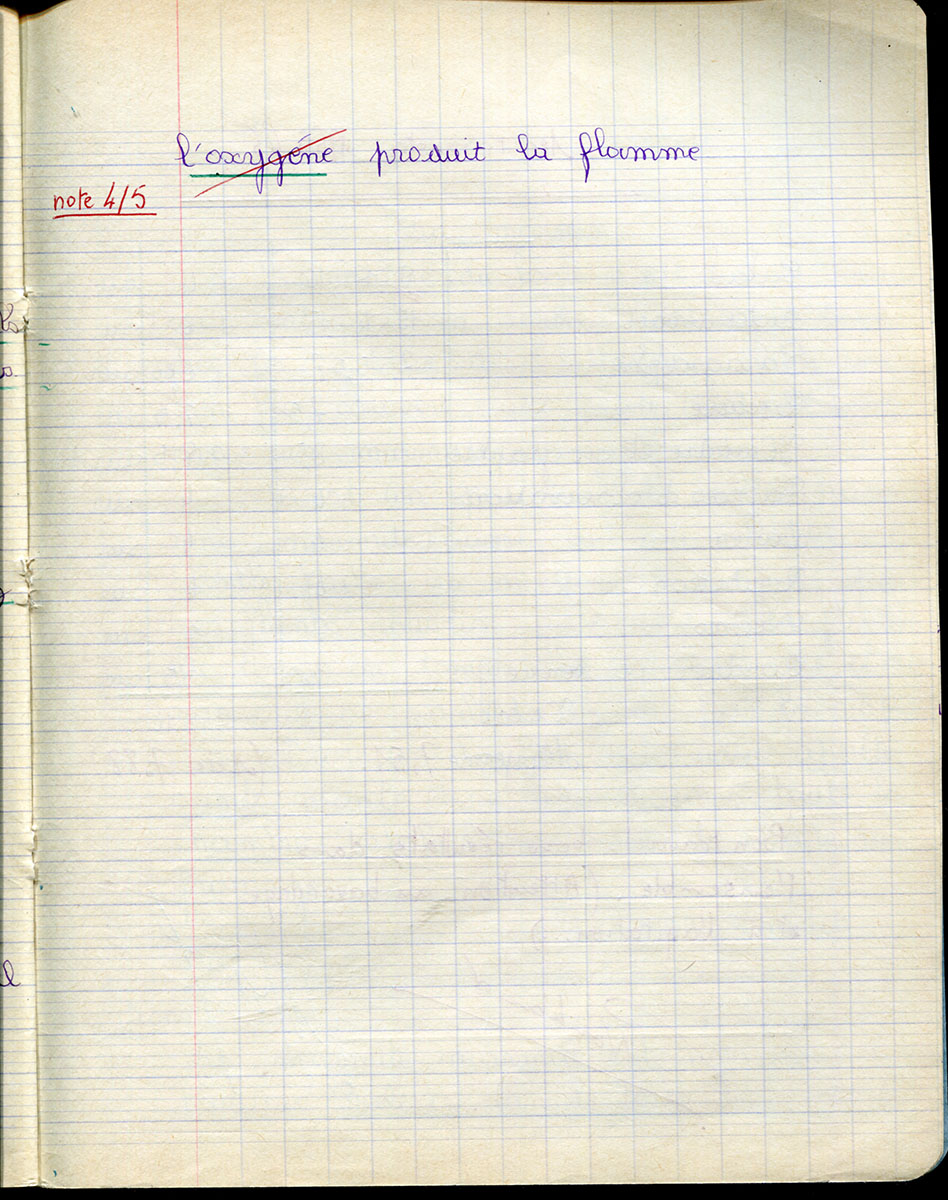 l'oxygéne produit la flamme
note 4/5